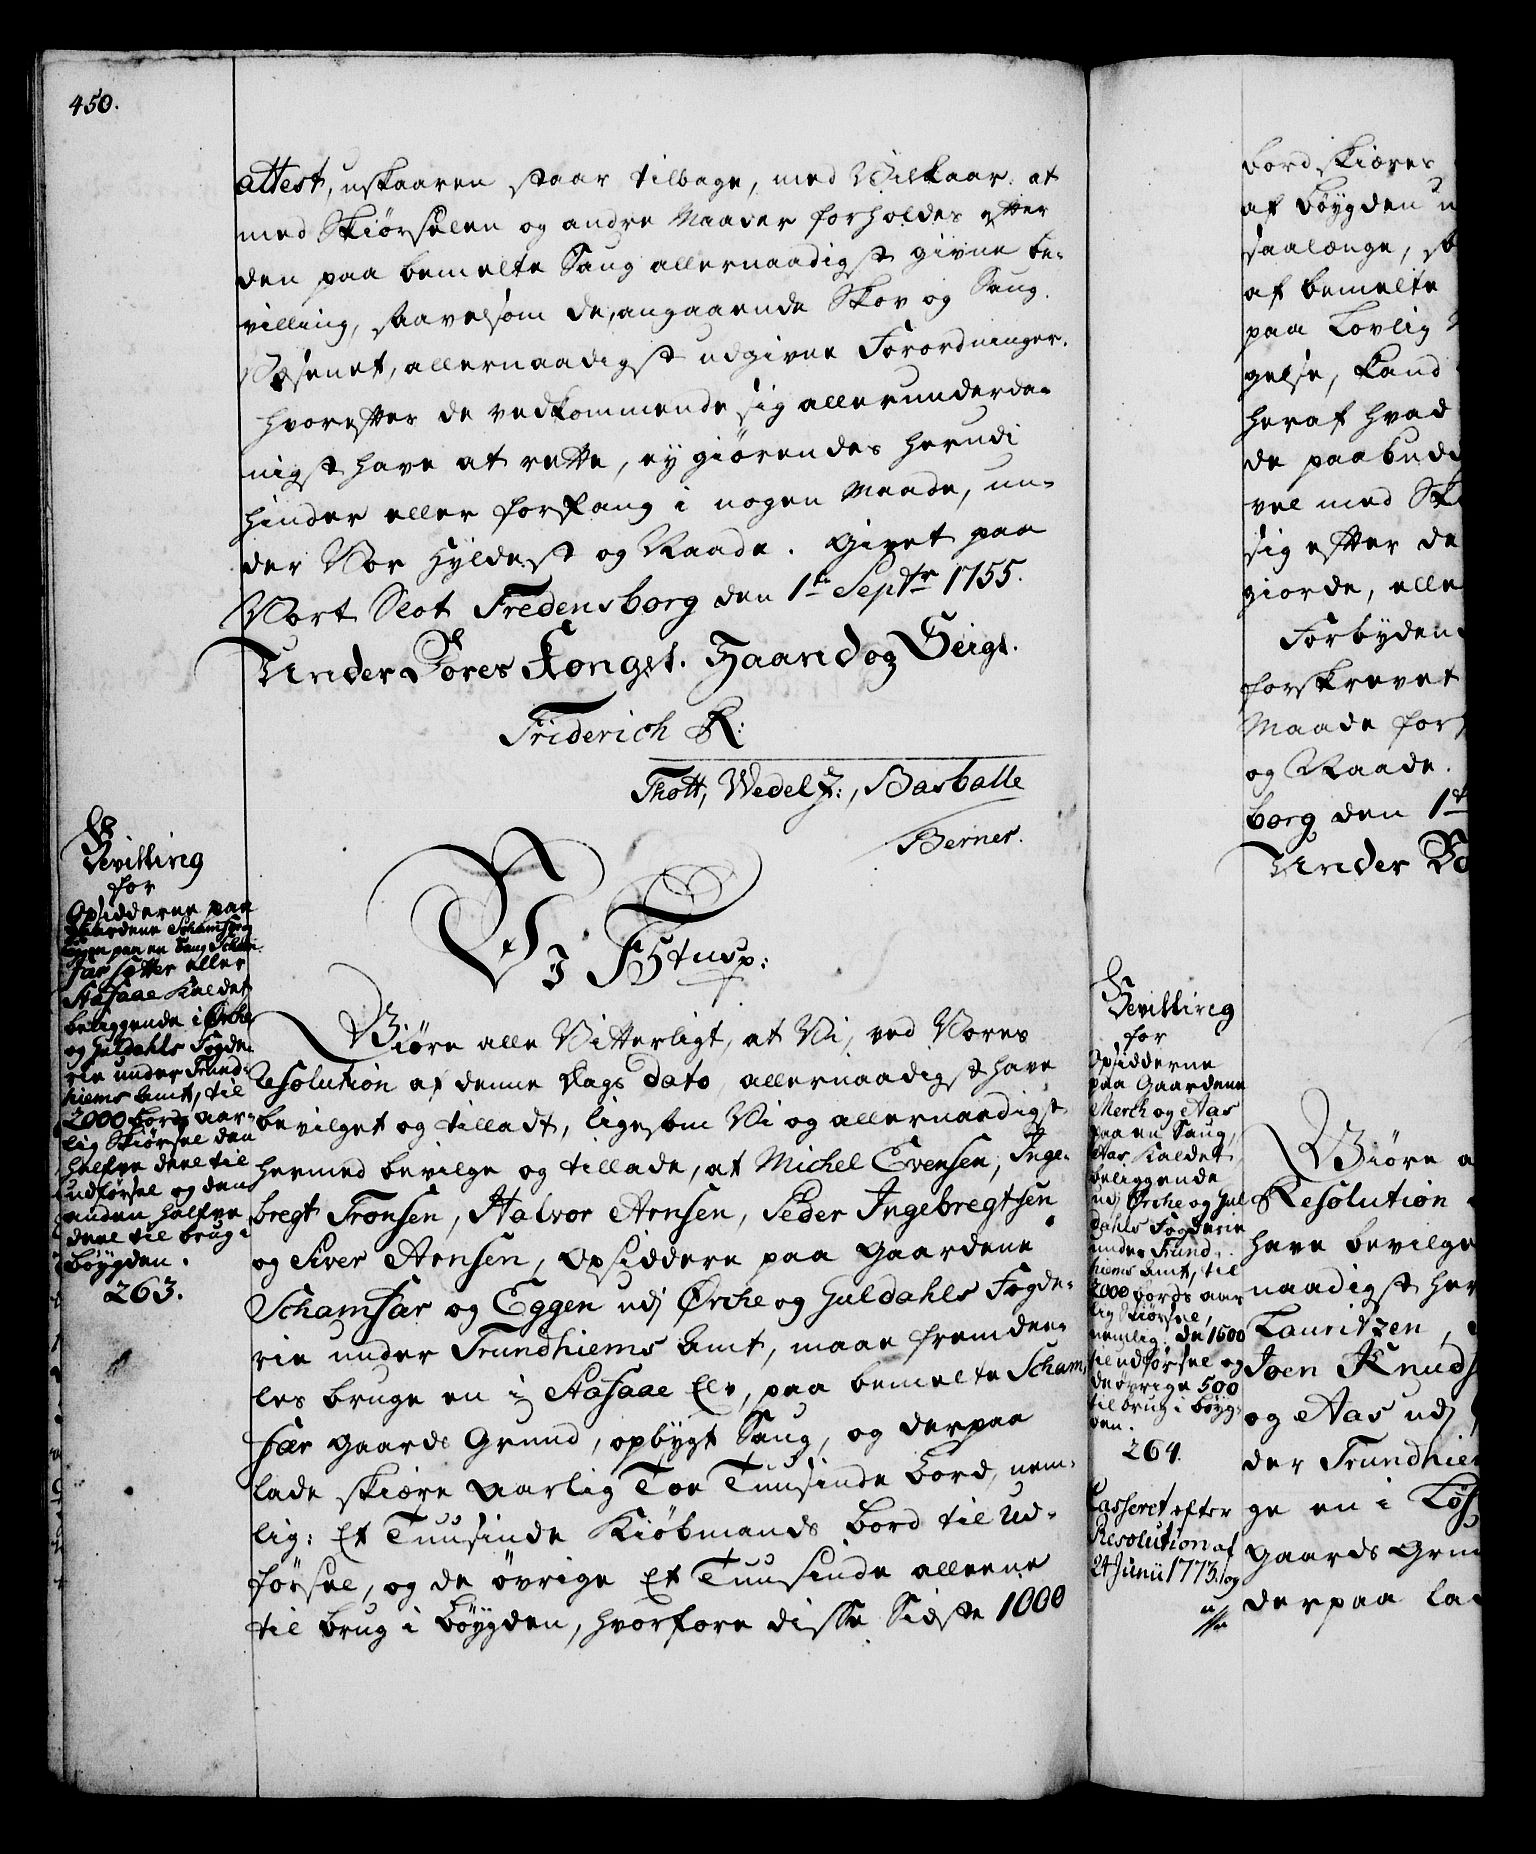 450.
attest, uskaaren staar tilbage, med Vilkaar at
med Skiørselen og andre Maader forholdes efter
den paa bemelte Saug allernaadigst givne be-
villing, saavelsom de, angaaende Skov og Saug-
Væsenet, allernaadigst udgivne Forordninger.
hvorefter de vedkommende sig allerunderda-
nigst have at rette, ey giørendes herudi
hinder eller forfang i nogen Maade, un-
der Vor Hyldest og Naade. Givet paa
Vort Slot Fredensborg den 1te Septr 1755.
Under Vores Kongel. Haand og Seigl.
Friderich R:
Thott, Wedel J:, Barballe
Berner.
Bevilling
for
Opsidderne paa
Gaardene Schamfær og
Eggen paa en Saug Scham-
fær sætter eller
Aasaae kaldet
beliggende i Ørche
og Guldahls Fogde-
rie under Trund-
hiems Amt, til
2000 bord aar-
lig Skiørsel den
halfve deel til
udførsel og den
anden halfve
deel til brug i
bøygden.
263.
Vi F 5tus p:
Giøre alle Vitterligt, at Vi, ved Vores
Resolution af denne Dags dato, allernaadigst have
bevilget og tilladt, ligesom Vi og allernaadigst
hermed bevilge og tillade, at Michel Evensen, Inge-
bregt Tronsen, Halvor Arnsen, Peder Ingebregtsen
og Siver Arnsen, Opsiddere paa Gaardene
Schamfær og Eggen udj Ørche og Guldahls Fogde-
rie under Trundhiems Amt, maae fremdee-
les bruge en i Aasaae Elv, paa bemelte Scham-
fær Gaards Grund, opbygt Saug, og derpaa
lade skiære Aarlig Toe Tuusinde Bord, nem-
lig: Et Tuusinde Kiøbmands Bord til Ud-
førsel, og de øvrige Et Tuusinde alleene
til brug i bøygden, hvorfore disse Sidste 1000
bord skiæres
af bøygden u
saalænge, sk
af bemelte
paa Lovlig
gelse, kand
heraf hvad
de paabudd
vel med Ski
sig efter de
giorde, elle
Forbyden
forskrevet
Maade for
og Naade.
borg den 1te
Under Vo
Bevilling
for
Opsidderne
paa Gaardene
Merch og Aas
paa en Saug,
Aas kaldet,
beliggende
udj Ørche og Gul
dahls Fogderie
under Trund-
hiems Amt, til
2000 bords aar
lig Skiørsel,
nemlig: de 1500
til udførsel og
de øvrige 500
til brug i bøyg-
den.
264.
Casseret efter
Resolution af
24 Junii 1773.
Giøre a
Resolution
have bevilge
naadigst her
Lauritzen,
Joen Knuds
og Aas udj
der Trundhiem
ge en i Løs
Gaards Grun
derpaa lad